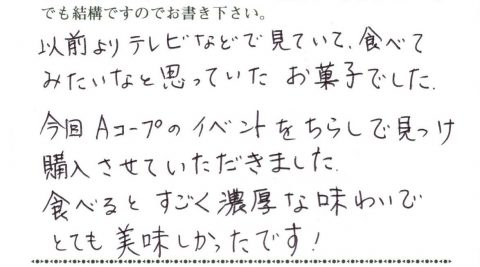 でも結構ですのでお書き下さい。
以前よりテレビなどで見ていて、食べて
みたいなと思っていた お菓子でした。
今回 Aコープの イベントをちらしで見つけ
購入させていただきました。
食べると すごく濃厚な味わいで
とても 美味しかったです!